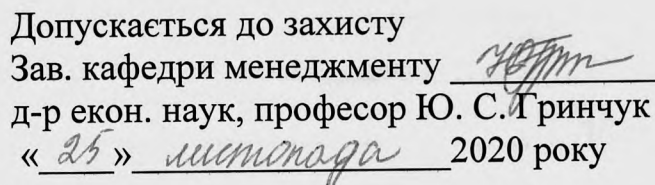 Допускається до захисту
Зав. кафедри менеджменту
д-р екон. наук, професор Ю. С. Гринчук
« 25 » листопада 2020 року